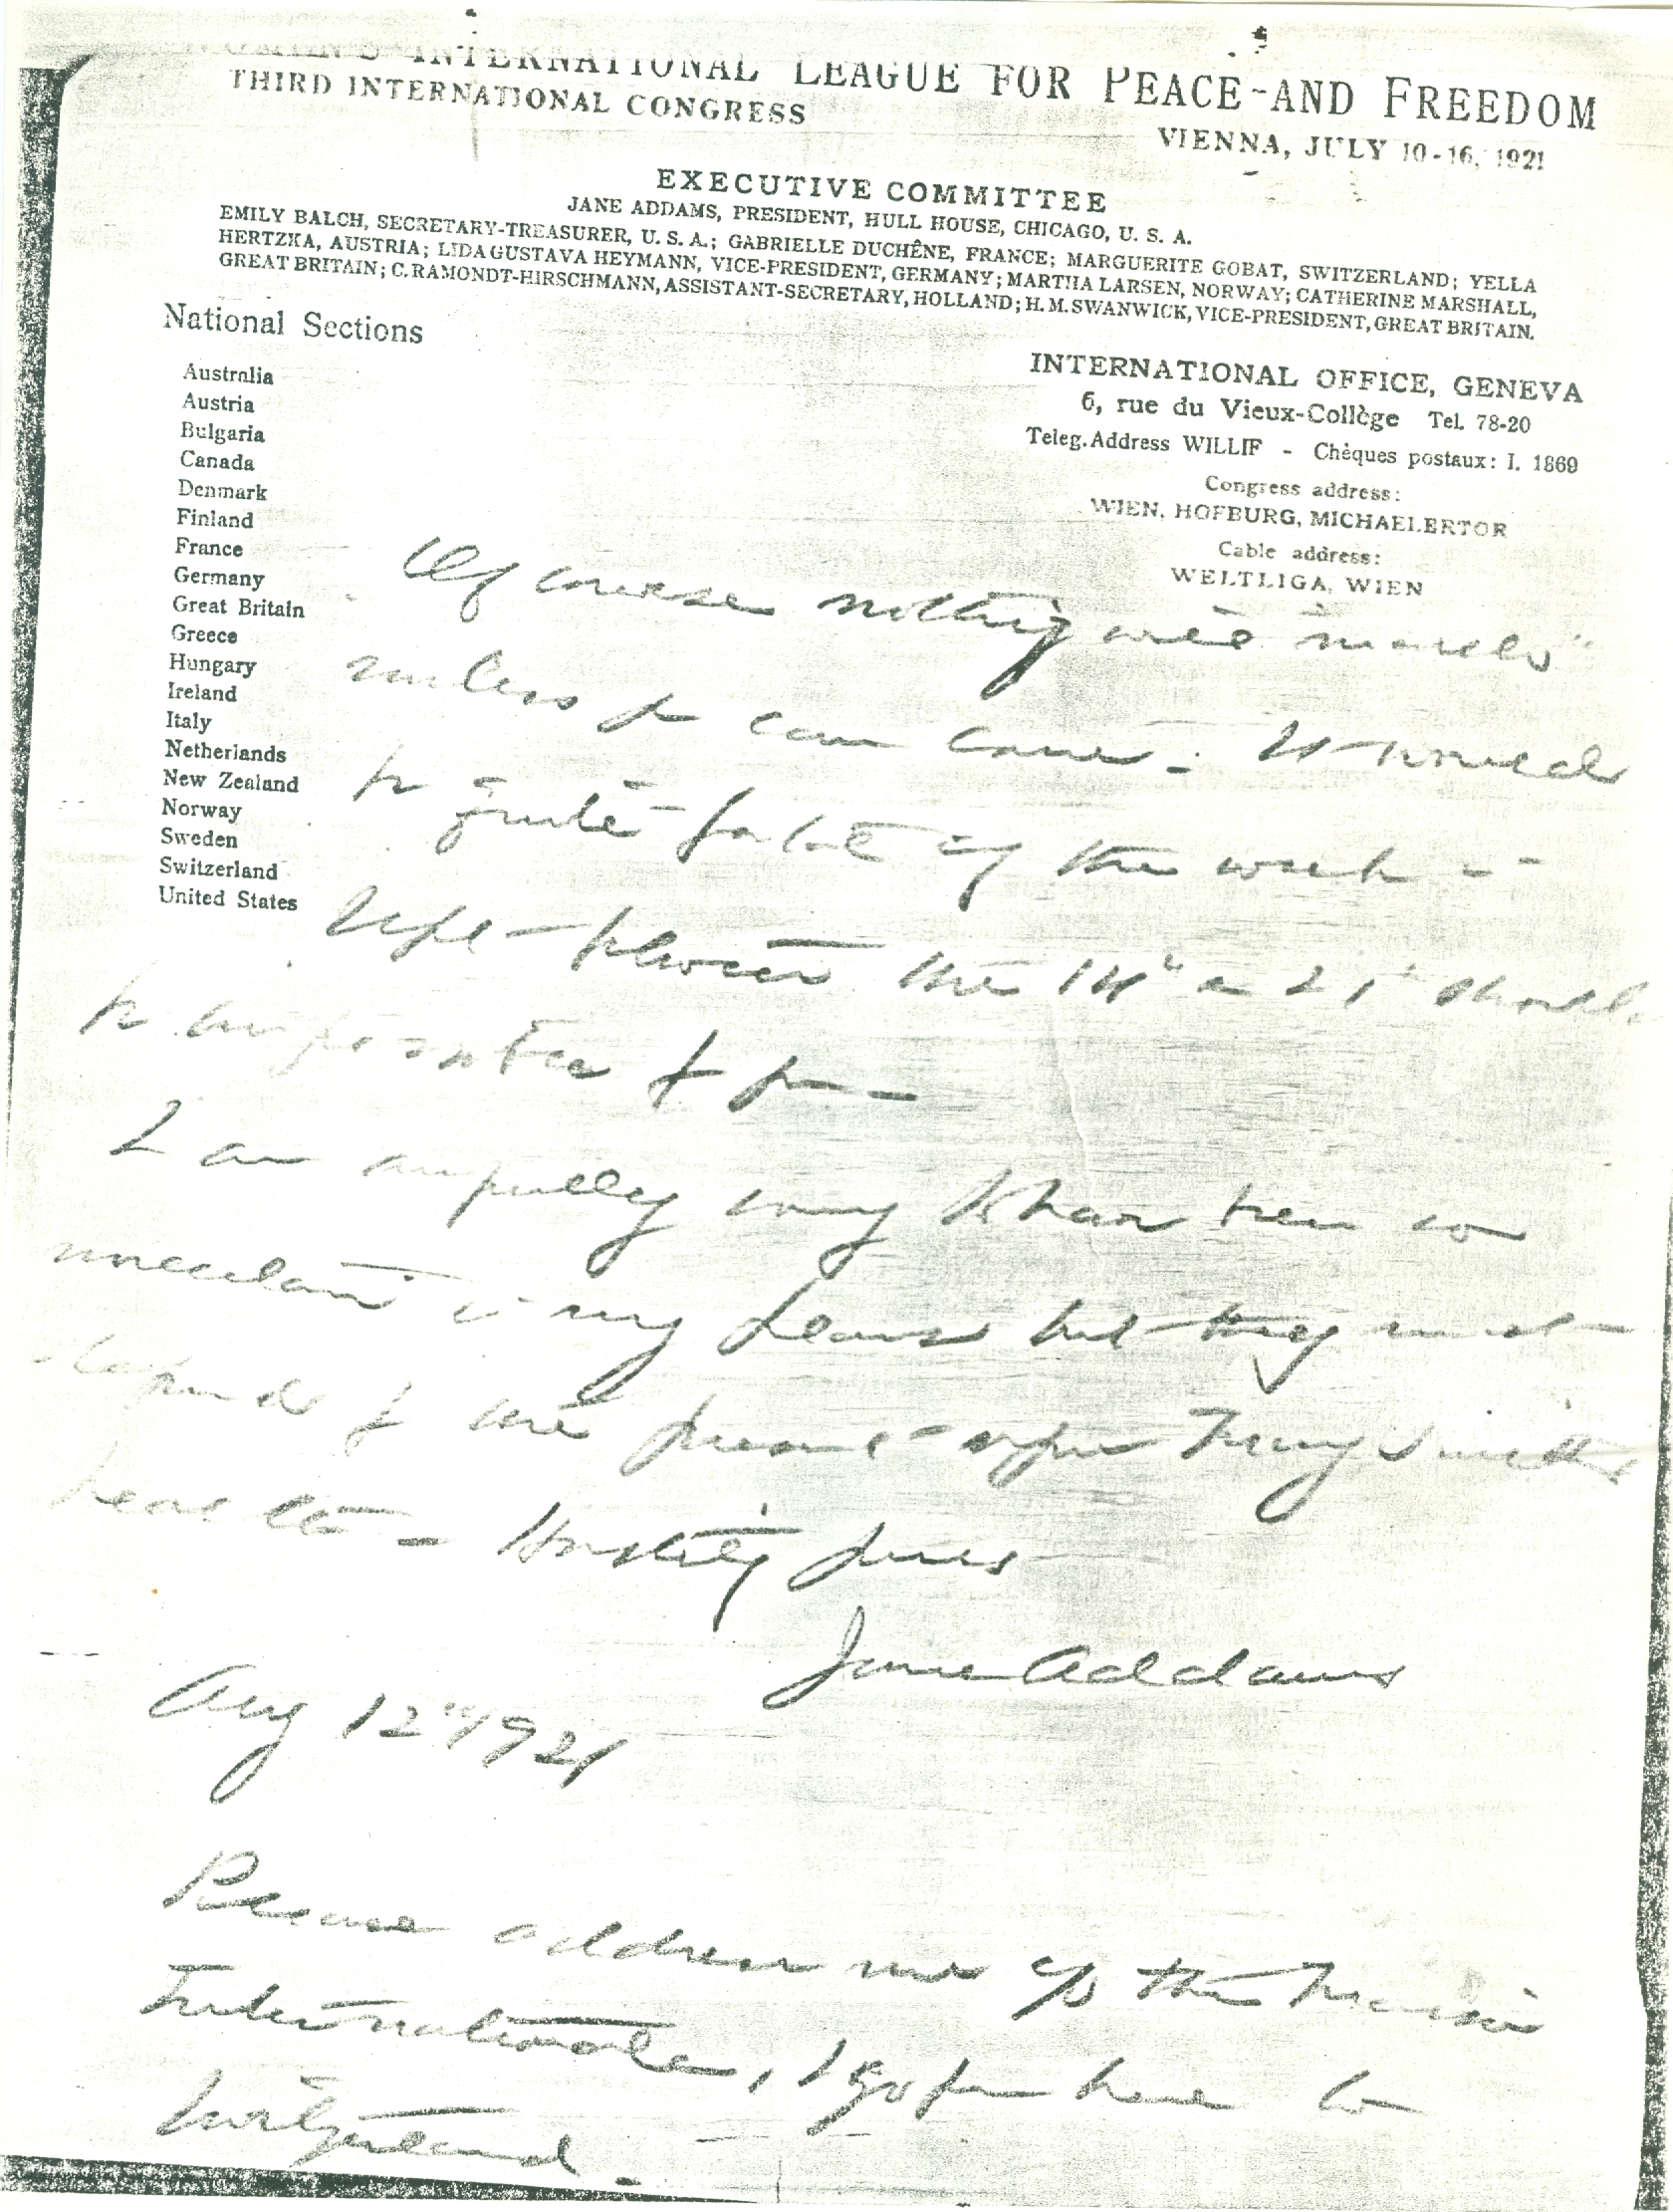 WOMEN'S INTERNATIONAL LEAGUE FOR PEACE AND FREEDOM
THIRD INTERNATIONAL CONGRESS
VIENNA, JULY 10-16, 1921
EXECUTIVE COMMITTEE
JANE ADDAMS, PRESIDENT, HULL HOUSE, CHICAGO, U. S. A.
EMILY BALCH, SECRETARY-TREASURER, U. S. A.; GABRIELLE DUCHÊNE, FRANCE; MARGUERITE GOBAT, SWITZERLAND; YELLA
HERTZKA, AUSTRIA; LIDA GUSTAVA HEYMANN, VICE-PRESIDENT, GERMANY; MARTHA LARSEN, NORWAY; CATHERINE MARSHALL,
GREAT BRITAIN; C. RAMONDT-HIRSCHMANN, ASSISTANT-SECRETARY, HOLLAND; H. M. SWANWICK, VICE-PRESIDENT, GREAT BRITAIN.
National Sections
Australia
Austria
Bulgaria
Canada
Denmark
Finland
France
Germany
Great Britain
Greece
Hungary
Ireland
Italy
Netherlands
New Zealand
Norway
Sweden
Switzerland
United States
INTERNATIONAL OFFICE, GENEVA
6, rue du Vieux-Collège Tel. 78-20
Teleg. Address WILLIF - Chèques postaux: I. 1869
Congress address:
WIEN, HOFBURG, MICHAELERTOR
Cable address:
WELTLIGA, WIEN
Of course nothing will
unless you can come. It would
be quite the week
Sept - between the 14" & 21" should
be impossible for you -
I am awfully sorry to have been so
uncertain in my plans but they must
depend for the present upon Mary Smith's
health - Hastily yours
Jane Addams
Aug 12" 1921
Please address me c/o the Maison
Internationale, I go from here to
Switzerland -